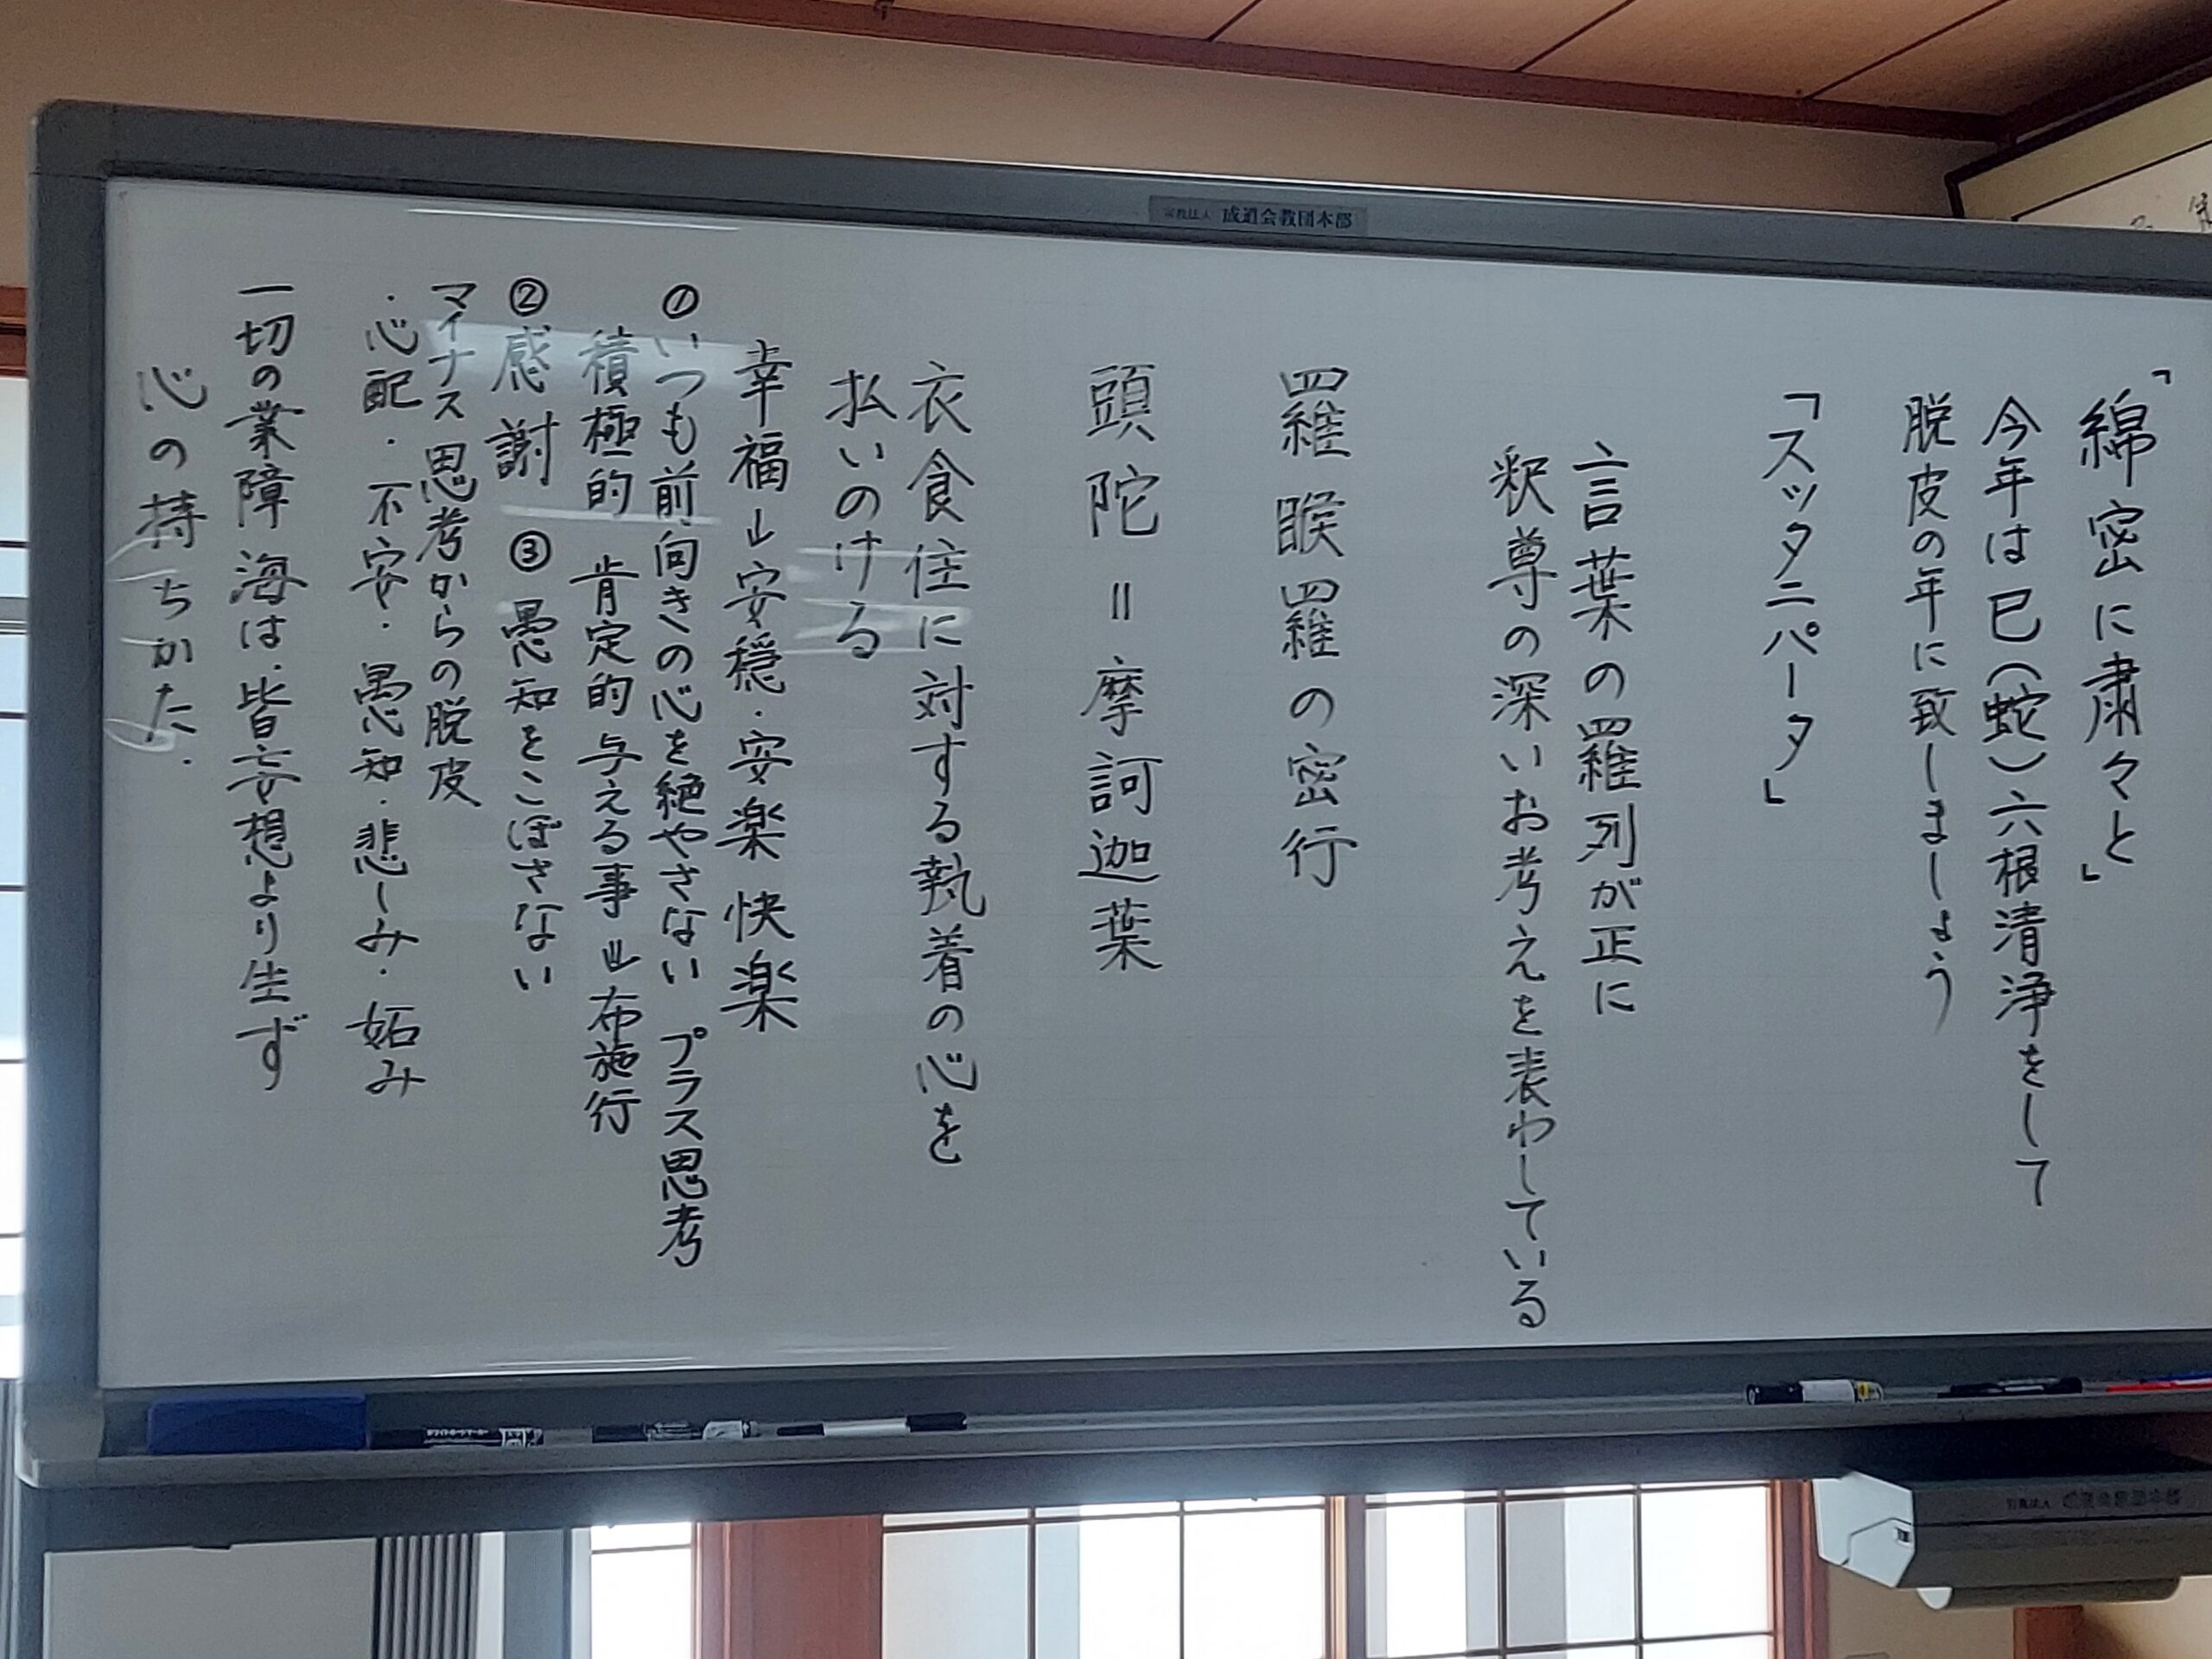 宗教法人 成道会教団本部
「綿密に粛々と」
今年は巳(蛇)六根清浄をして
脱皮の年に致しましょう
「スッタニパータ」
言葉の羅列が正に
釈尊の深いお考えを表わしている
羅睺羅の密行
頭陀=摩訶迦葉
衣食住に対する執着の心を
払いのける
幸福→安穏・安楽 快楽
①いつも前向きの心を絶やさない プラス思考
積極的 肯定的 与える事⇒布施行
②感謝 ③愚知をこぼさない
マイナス思考からの脱皮
・心配・不安・愚知・悲しみ・妬み
一切の業障海は、皆妄想より生ず
心の持ちかた.